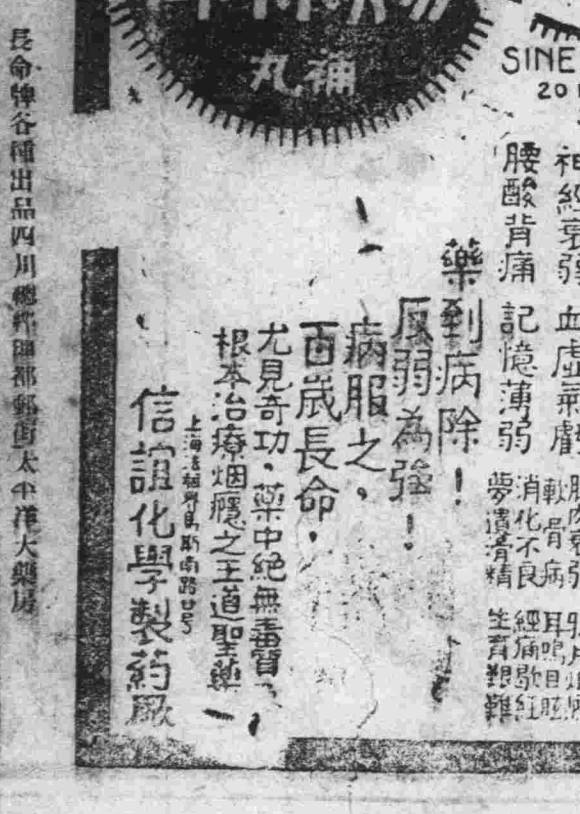 補丸
SINE
20
神經衰弱 血虛氣虧
腰酸背痛 記憶薄弱
軟骨病 耳鳴目眩
消化不良 經痛歇紅
夢遺滑精 生育艱難
藥到病除！
反弱為強！
病服之，
百歲長命，
尤見奇功，藥中絕無毒質、
根本治療烟癮之王道聖藥
上海法租界馬斯南路廿号
信誼化學製药厰
長命牌各種出品四川總經理都郵街太平洋大藥房